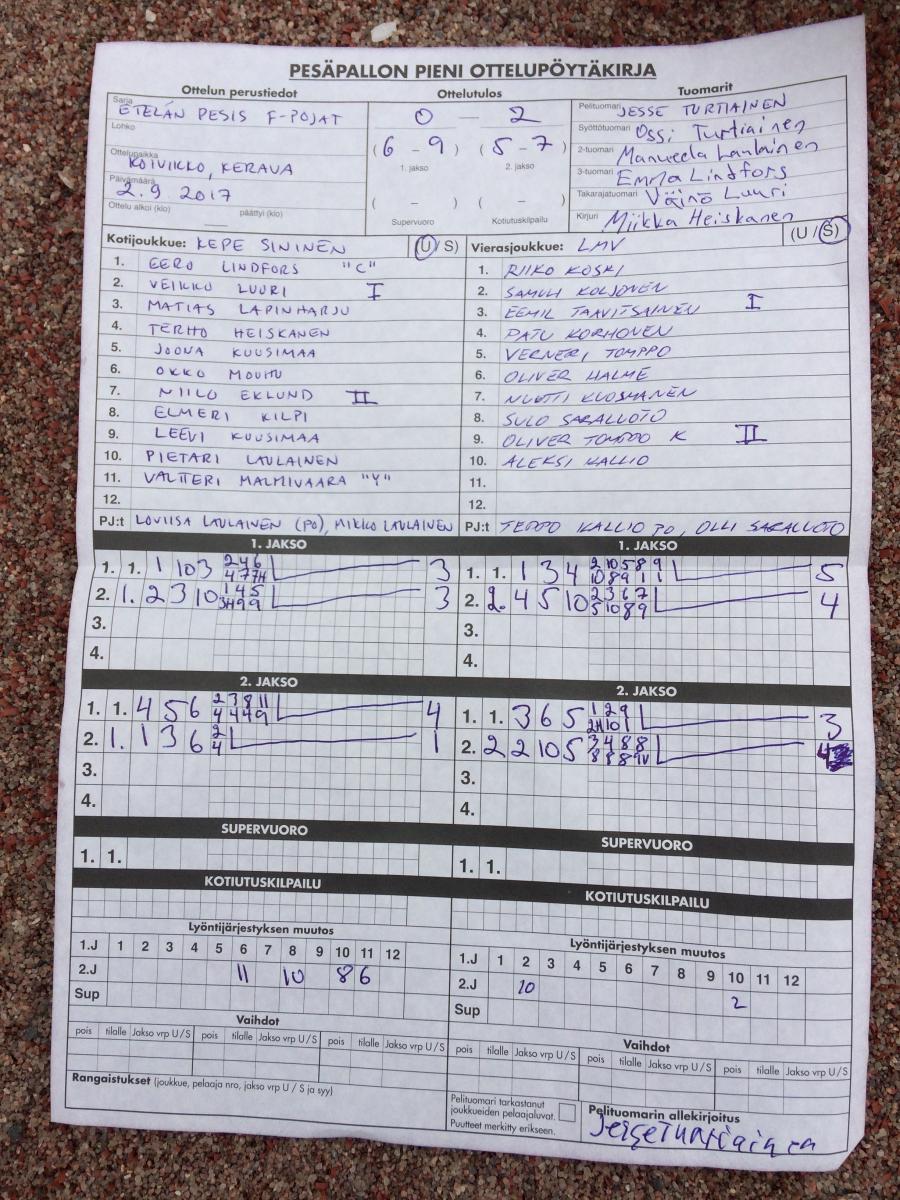 PESÄPALLON PIENI OTTELUPÖYTÄKIRJA
Ottelun perustiedot
Sarja ETELÄN PESIS F-POJAT
Lohko
Ottelupaikka KOIVIKKO, KERAVA
Päivämäärä 2.9.2017
Ottelu alkoi (klo) päättyi (klo)
Ottelutulos
0 — 2
(6 - 9) (5 - 7)
1. jakso 2. jakso
( - ) ( - )
Supervuoro Kotiutuskilpailu
Tuomarit
Pelituomari JESSE TURTIAINEN
Syöttötuomari Ossi Turtiainen
2-tuomari Manueela Laulainen
3-tuomari Emma Lindfors
Takarajatuomari Väinö Luuri
Kirjuri Miikka Heiskanen
Kotijoukkue: KEPE SININEN (U/S)
1. EERO LINDFORS "C"
2. VEIKKO LUURI I
3. MATIAS LAPINHARJU
4. TERHO HEISKANEN
5. JOONA KUUSIMAA
6. OKKO
7. NIILO EKLUND II
8. ELMERI KILPI
9. LEEVI KUUSIMAA
10. PIETARI LAULAINEN
11. VALTTERI MALMIVAARA "Y"
12.
PJ:t LOVIISA LAULAINEN (PO), MIKKO LAULAINEN
Vierasjoukkue: LMV (U/S)
1. RIIKO KOSKI
2. SAMULI KOLJONEN
3. EEMIL TAAVITSAINEN I
4. PATU KORHONEN
5. VERNERI TOMPPO
6. OLIVER HALME
7. NUUTTI KUOSMANEN
8. SULO SARALLUOTO
9. OLIVER TOMPPO K II
10. ALEKSI KALLIO
11.
12.
PJ:t TEPPO KALLIO PO, OLLI SARALUOTO
1. JAKSO
1. 1. 1 10 3 2 4 6 3
4 7 7H
2. 1. 2 3 10 1 4 5 3
3H 9 9
3.
4.
1. JAKSO
1. 1. 1 3 4 2 10 5 8 9 5
10 8 9 1 1
2. 2. 4 5 10 2 3 6 7 4
5 10 8 9
3.
4.
2. JAKSO
1. 1. 4 5 6 2 3 8 11 4
4 4 4 9
2. 1. 1 3 6 2 1
4
3.
4.
2. JAKSO
1. 1. 3 6 5 1 2 9 3
2H 10 1
2. 2 2 10 5 3 4 8 8 4
8 8 8
3.
4.
SUPERVUORO
1. 1.
SUPERVUORO
1. 1.
KOTIUTUSKILPAILU
KOTIUTUSKILPAILU
Lyöntijärjestyksen muutos
1.J 1 2 3 4 5 6 7 8 9 10 11 12
2.J 11 10 8 6
Sup
Lyöntijärjestyksen muutos
1.J 1 2 3 4 5 6 7 8 9 10 11 12
2.J 10 2
Sup
Vaihdot
pois tilalle Jakso vrp U/S pois tilalle Jakso vrp U/S pois tilalle Jakso vrp U/S
Vaihdot
pois tilalle Jakso vrp U/S pois tilalle Jakso vrp U/S pois tilalle Jakso vrp U/S
Rangaistukset (joukkue, pelaaja nro, jakso vrp U / S ja syy)
Pelituomari tarkastanut
joukkueiden pelaajaluvat.
Puutteet merkitty erikseen.
Pelituomarin allekirjoitus
Jesse Turtiainen